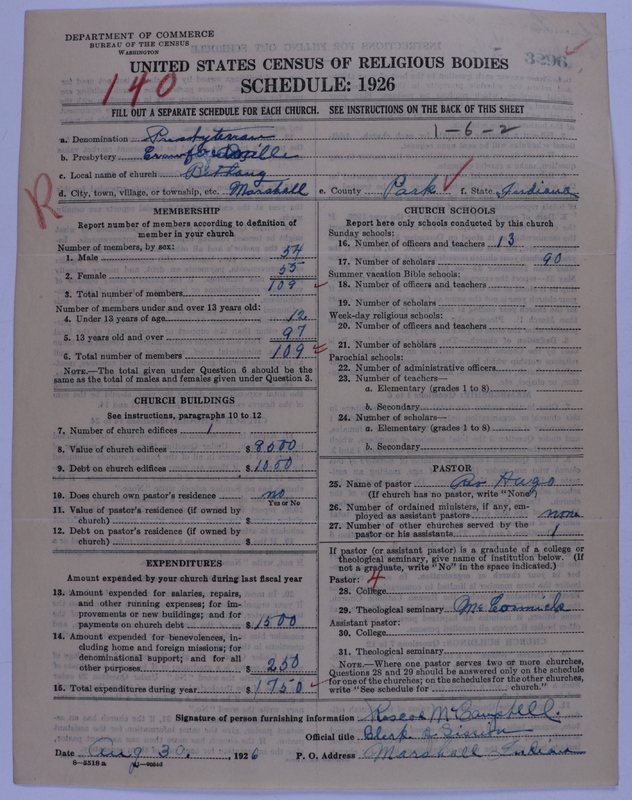 DEPARTMENT OF COMMERCE
BUREAU OF THE CENSUS
WASHINGTON
3296
UNITED STATES CENSUS OF RELIGIOUS BODIES
140
SCHEDULE: 1926
FILL OUT A SEPARATE SCHEDULE FOR EACH CHURCH. SEE INSTRUCTIONS ON THE BACK OF THIS SHEET
1-6-2
a. Denomination Presbyterian
b. Presbytery Crawfordsville
c. Local name of church Bethany
d. City, town, village, or township, etc. Marshall e. County Park f. State Indiana
R
MEMBERSHIP
Report number of members according to definition of
member in your church
Number of members, by sex:
1. Male 54
2. Female 55
3. Total number of members 109
Number of members under and over 13 years old:
4. Under 13 years of age 12
5. 13 years old and over 97
6. Total number of members 109
NOTE.—The total given under Question 6 should be the
same as the total of males and females given under Question 3.
CHURCH BUILDINGS
See instructions, paragraphs 10 to 12
7. Number of church edifices 1
8. Value of church edifices $ 8500
9. Debt on church edifices $ 1050
10. Does church own pastor's residence no
Yes or No
11. Value of pastor's residence (if owned by
church) $
12. Debt on pastor's residence (if owned by
church) $
EXPENDITURES
Amount expended by your church during last fiscal year
13. Amount expended for salaries, repairs,
and other running expenses; for im-
provements or new buildings; and for
payments on church debt $ 1500
14. Amount expended for benevolences, in-
cluding home and foreign missions; for
denominational support; and for all
other purposes $ 250
15. Total expenditures during year $ 1750
CHURCH SCHOOLS
Report here only schools conducted by this church
Sunday schools:
16. Number of officers and teachers 13
17. Number of scholars 90
Summer vacation Bible schools:
18. Number of officers and teachers
19. Number of scholars
Week-day religious schools:
20. Number of officers and teachers
21. Number of scholars
Parochial schools:
22. Number of administrative officers
23. Number of teachers—
a. Elementary (grades 1 to 8)
b. Secondary
24. Number of scholars—
a. Elementary (grades 1 to 8)
b. Secondary
PASTOR
25. Name of pastor Rev Hugo
(If church has no pastor, write "None")
26. Number of ordained ministers, if any, em-
ployed as assistant pastors none
27. Number of other churches served by the
pastor or his assistants 1
If pastor (or assistant pastor) is a graduate of a college or
theological seminary, give name of institution below. (If
not a graduate, write "No" in the space indicated.)
Pastor: 4
28. College
29. Theological seminary McCormick
Assistant pastor:
30. College
31. Theological seminary
NOTE.—Where one pastor serves two or more churches,
Questions 28 and 29 should be answered only on the schedule
for one of the churches; on the schedules for the other churches,
write "See schedule for church."
Signature of person furnishing information Roscoe McCampbell
Official title Clerk of Session
Date Aug 30, 1926 P. O. Address Marshall Indiana
8-5518a